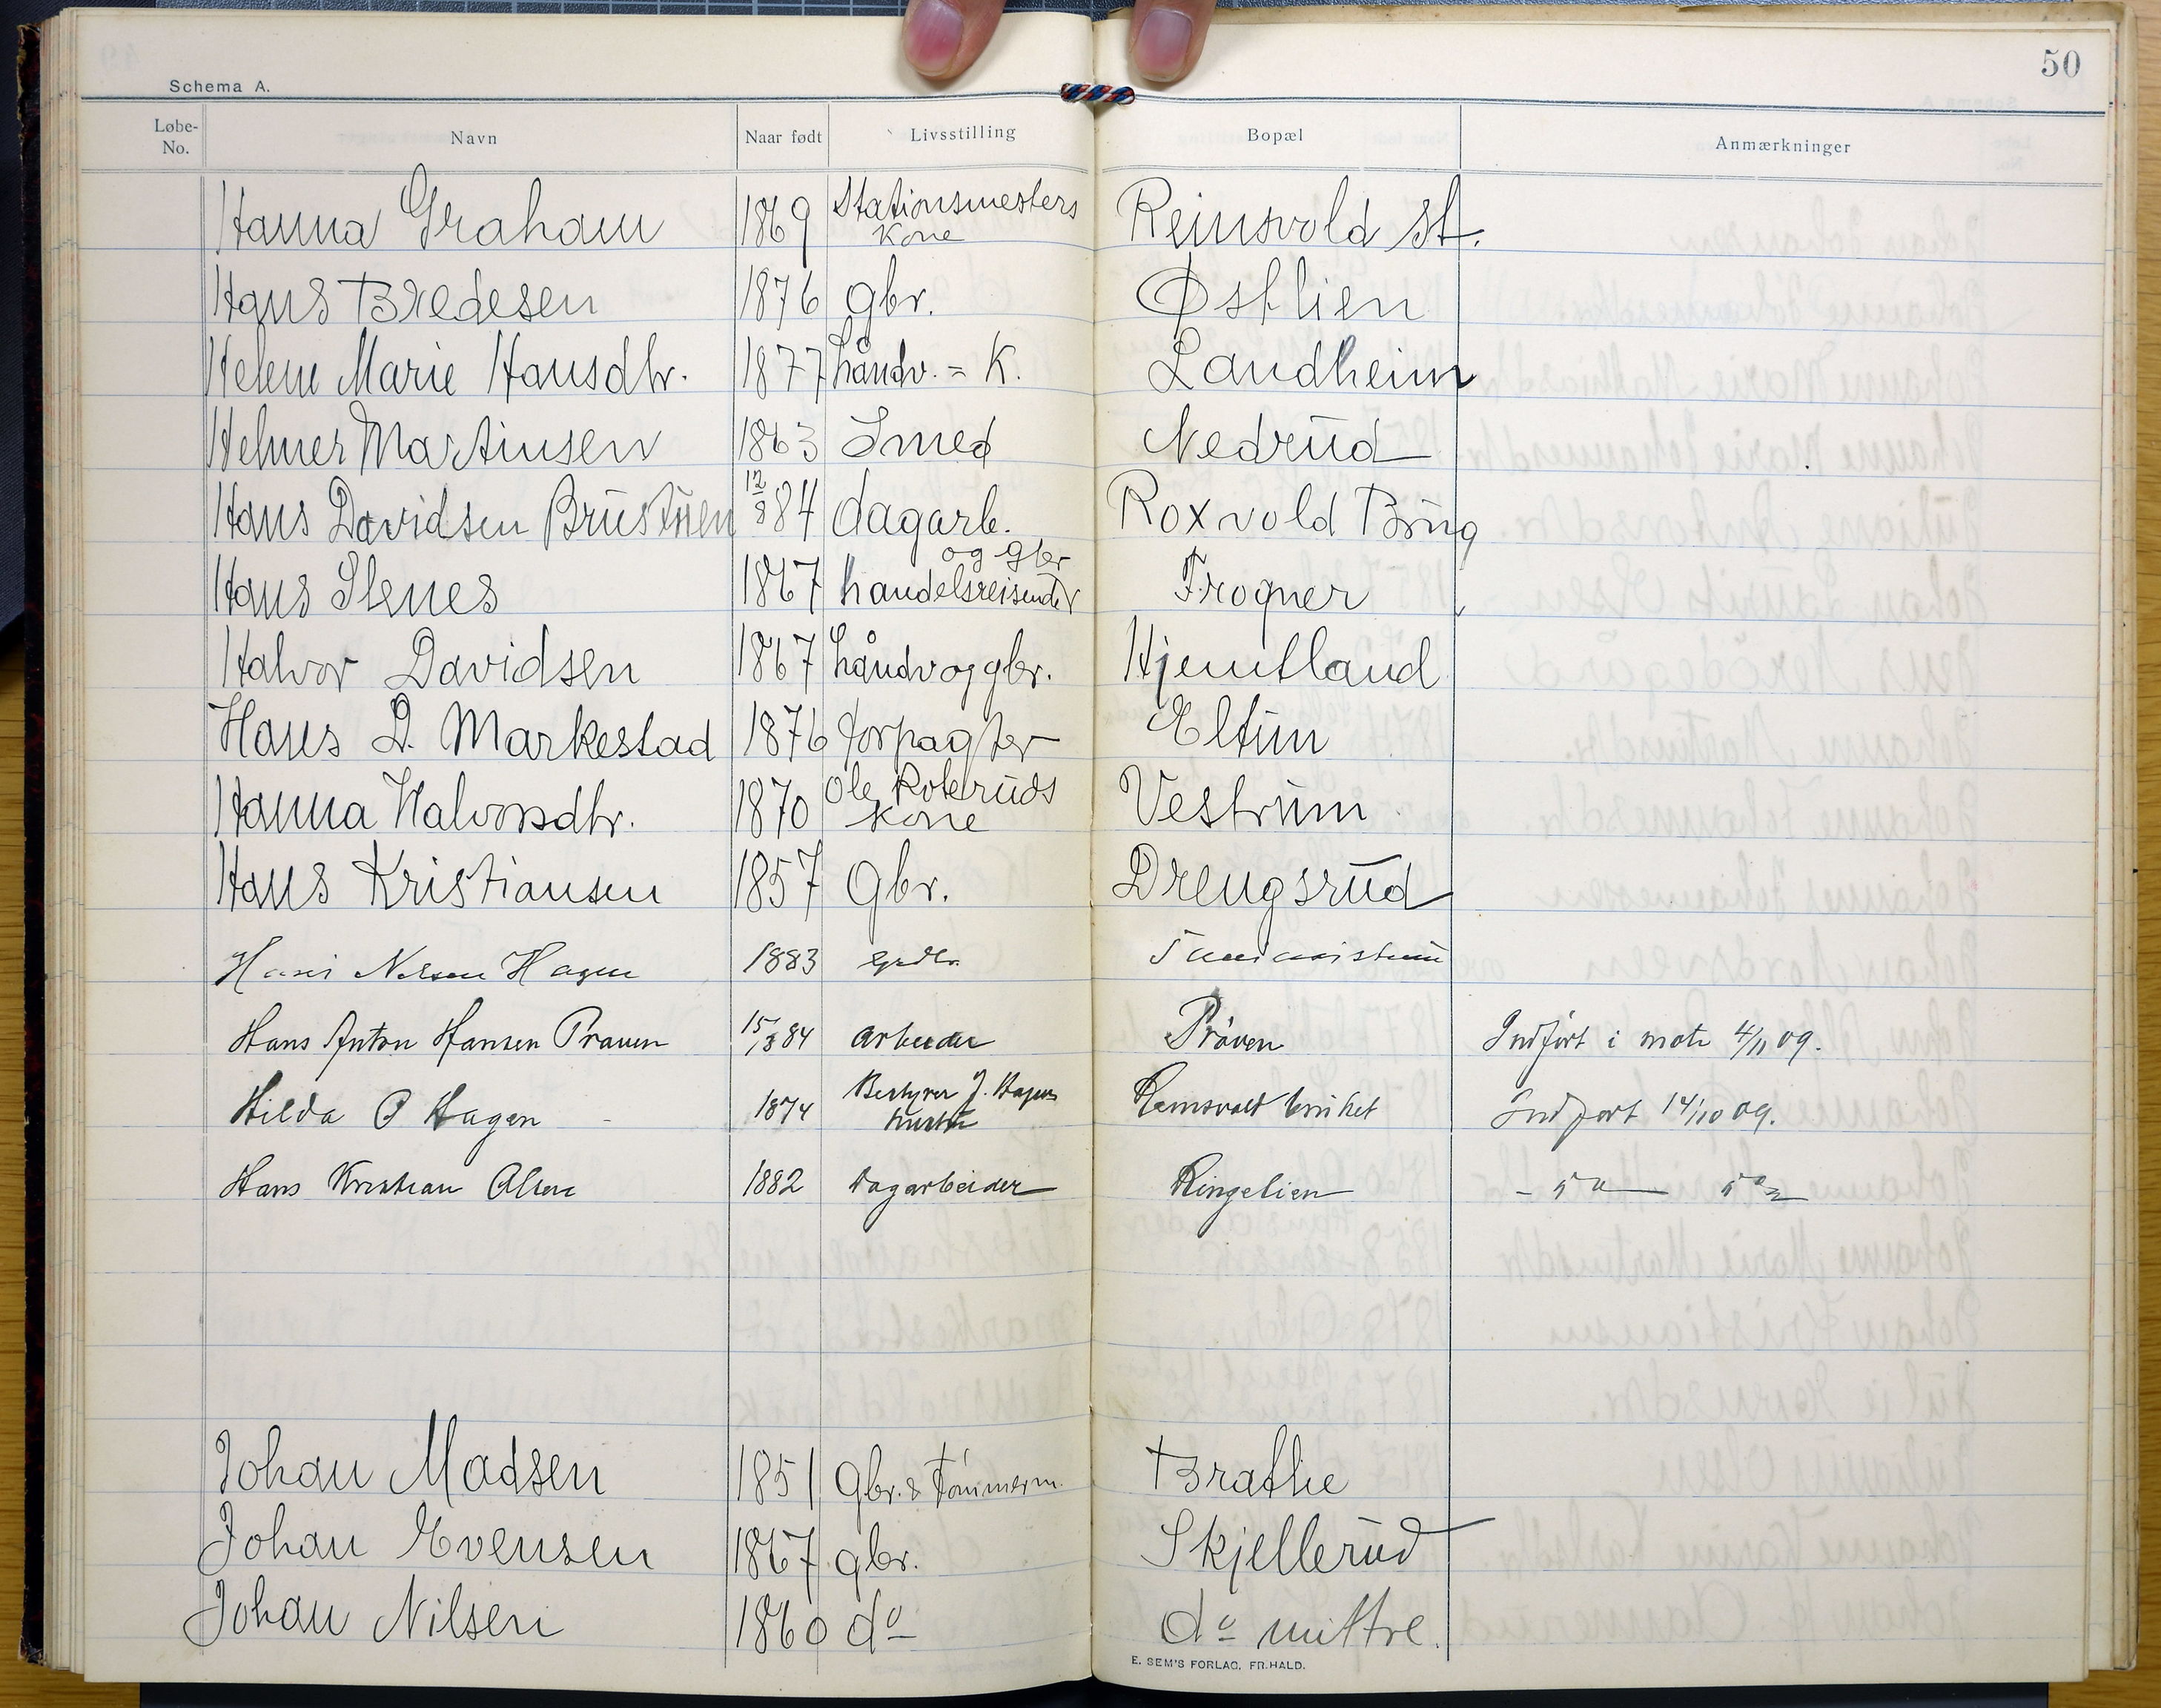 50
Schema A.
Løbe-No. Navn Naar født Livsstilling Bopæl Anmærkninger
Hanna Graham 1869 Stationsmesters Kone Reinsvold st.
Hans Bredesen 1876 gbr. Østlien
Helene Marie Hansdtr. 1877 håndv. = K. Landheim
Helmer Martinsen 1863 Smed Nedrud
Hans Davidsen Brustuen 12/8 84 dagarb. Roxvold Brug
Hans Stenes 1867 handelsreisende og gbr Frogner
Halvor Davidsen 1867 håndv og gbr. Hjemtland
Hans D. Markestad 1876 forpagter Eltun
Hanna Halvorsdtr. 1870 Ole Roleruds Kone Vestrum
Hans Kristiansen 1857 Gbr. Drengsrud
Hans Nilsen Hagen 1883
Hans Anton Hansen Prøven 15/3 84 arbeider Prøven Indført i møte 4/11 09.
Hilda O Hagen 1874 Bestyrer J. Hagens hustru Reinsvolt bruket Indført 14/10 09.
Hans Kristian Olsen 1882 Dagarbeider Ringelien
Johan Madsen 1851 Gbr. & Tømmerm. Brathe
Johan Evensen 1867 gbr. Skjellerud
Johan Nilsen 1860 do do mittre.
E. SEM'S FORLAG, FR.HALD.